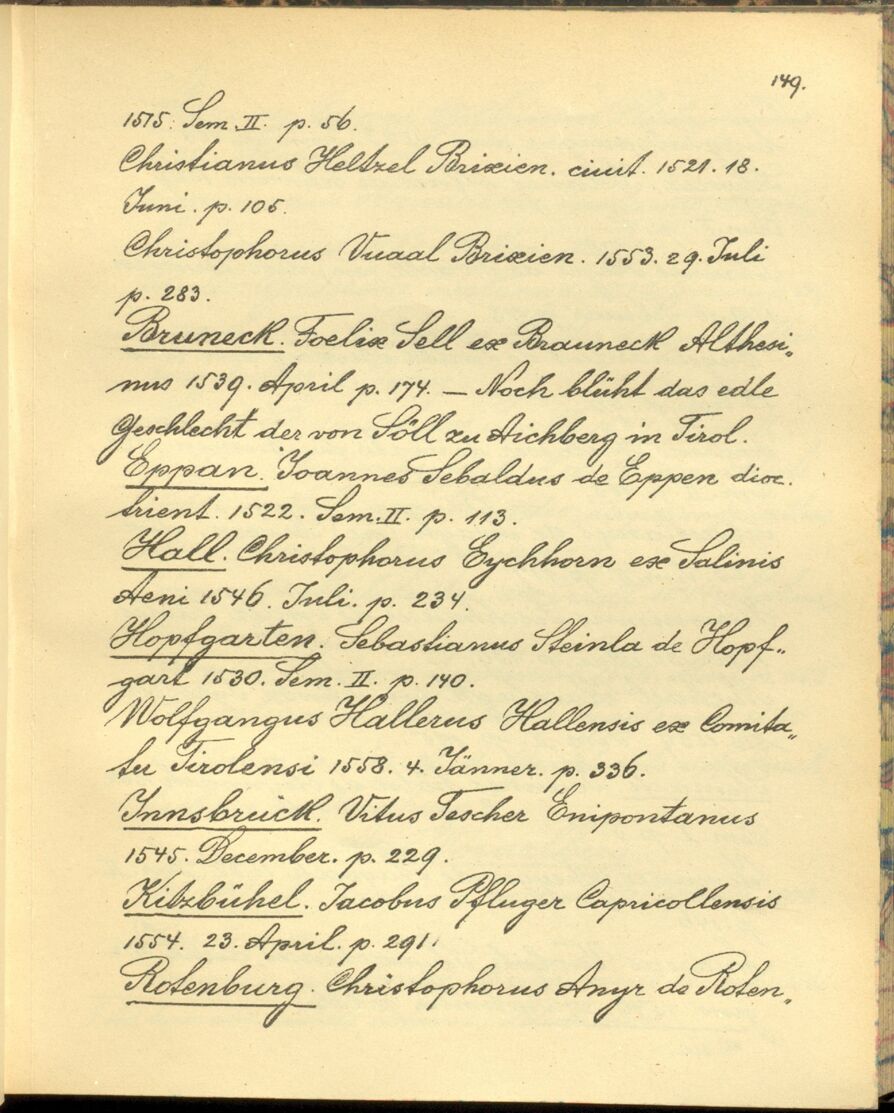 149.
1515. Sem. II. p. 56.
Christianus Heltzel Brixien. ciuit. 1521. 18.
Juni. p. 105.
Christophorus Vuaal Brixien. 1553. 29. Juli
p. 283.
Bruneck. Foelix Sell ex Brauneck Althesi„
nus 1539. April p. 174. — Noch blüht das edle
Geschlecht der von Söll zu Aichberg in Tirol.
Eppan. Joannes Sebaldus de Eppen dioc.
trient. 1522. Sem. II. p. 113.
Hall. Christophorus Eychhorn ex Salinis
Aeni 1546. Juli. p. 234.
Hopfgarten. Sebastianus Steinla de Hopf„
gart 1530. Sem. II. p. 140.
Wolfgangus Hallerus Hallensis ex Comita„
tu Tirolensi 1558. 4. Jänner. p. 336.
Innsbruck. Vitus Tescher Enipontanus
1545. December. p. 229.
Kitzbühel. Jacobus Pfluger Capricollensis
1554. 23. April. p. 291.
Rotenburg. Christophorus Anyr de Roten„